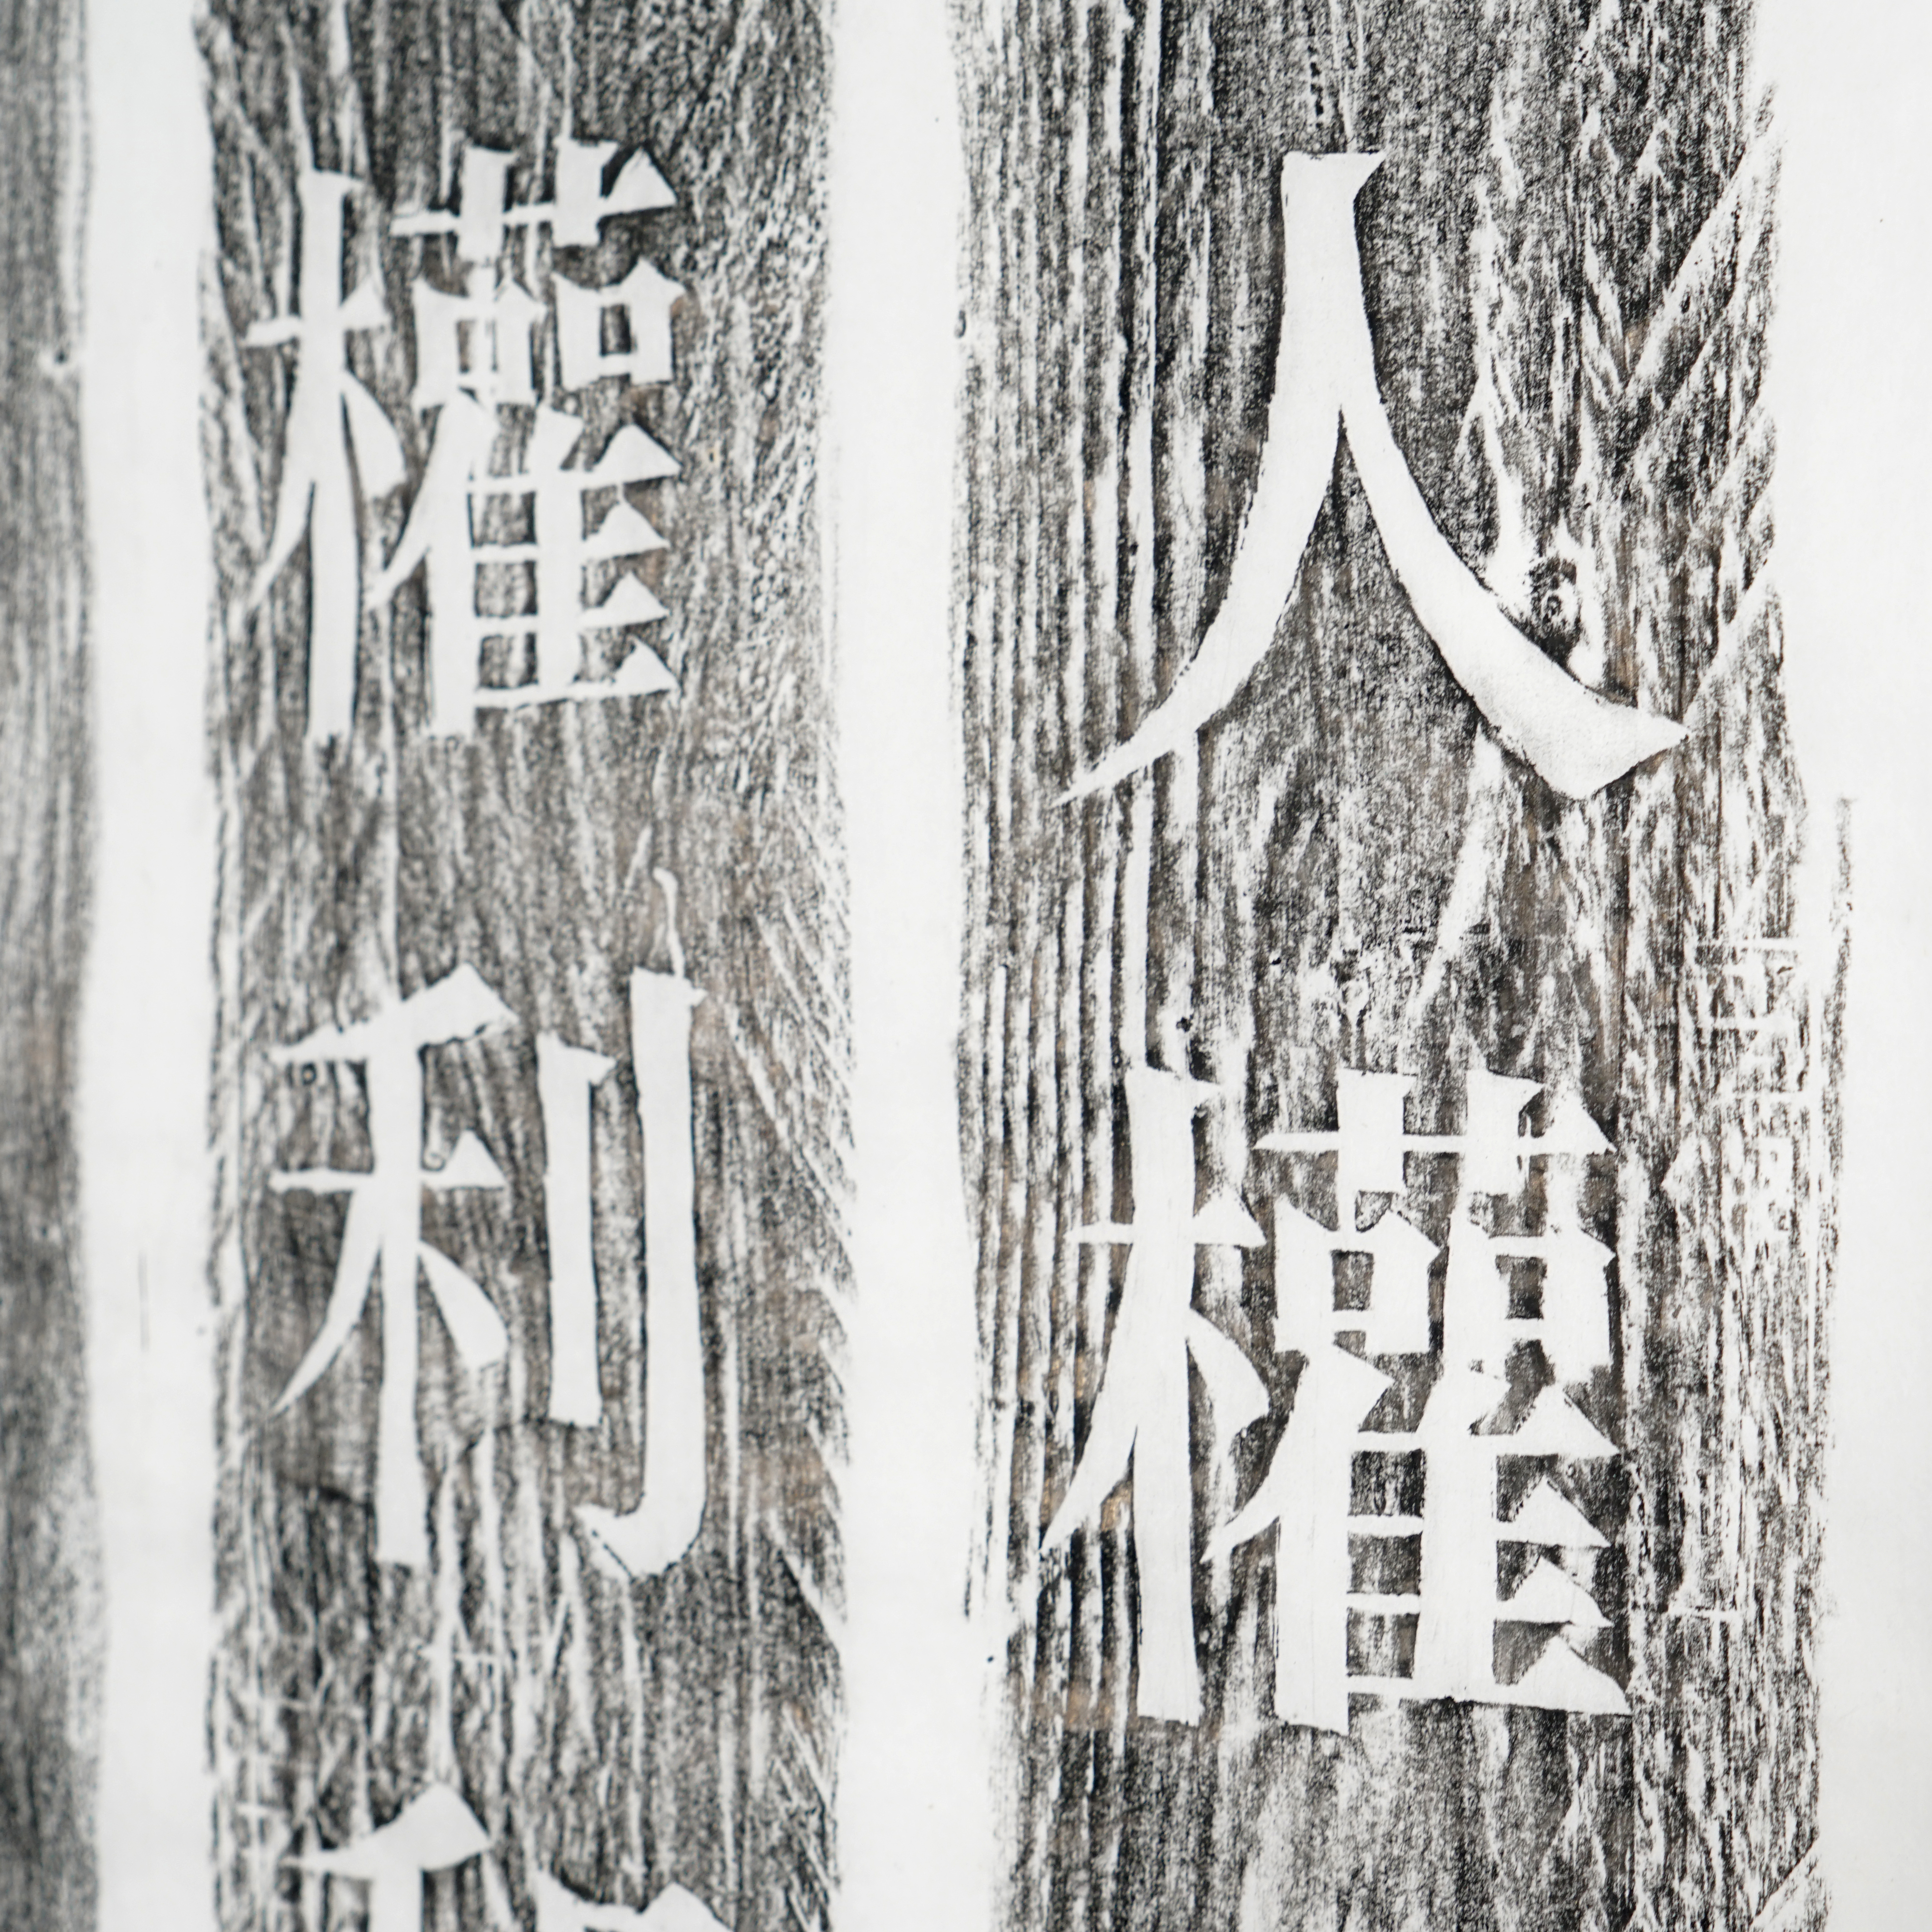 人權
權利